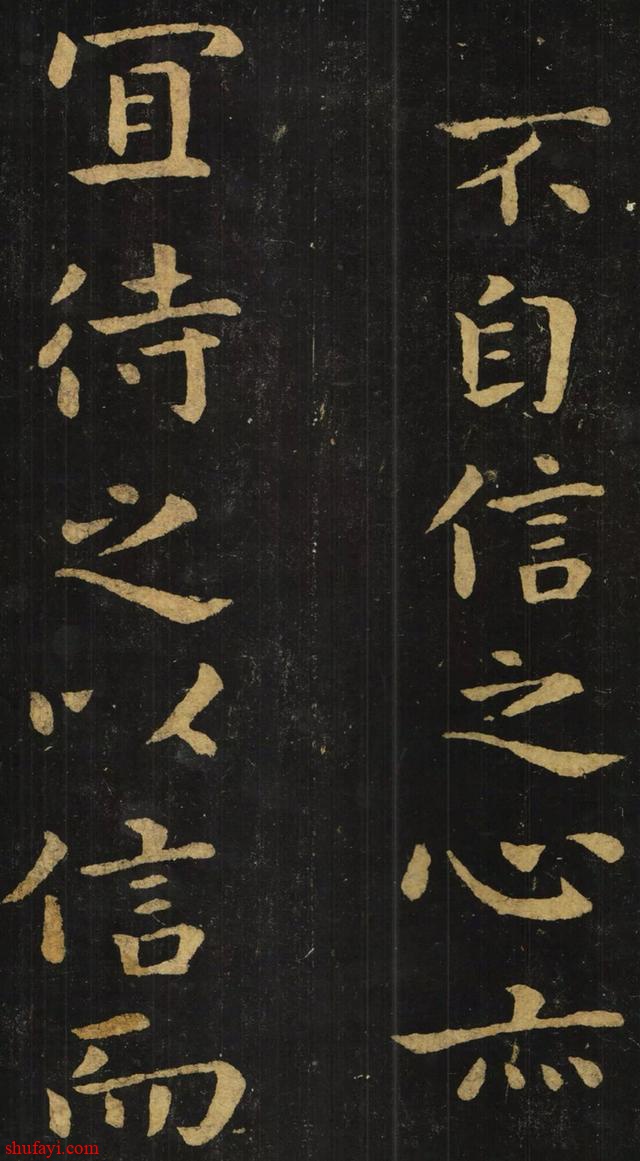 不自信之心亦
宜待之以信而
shufayi.com